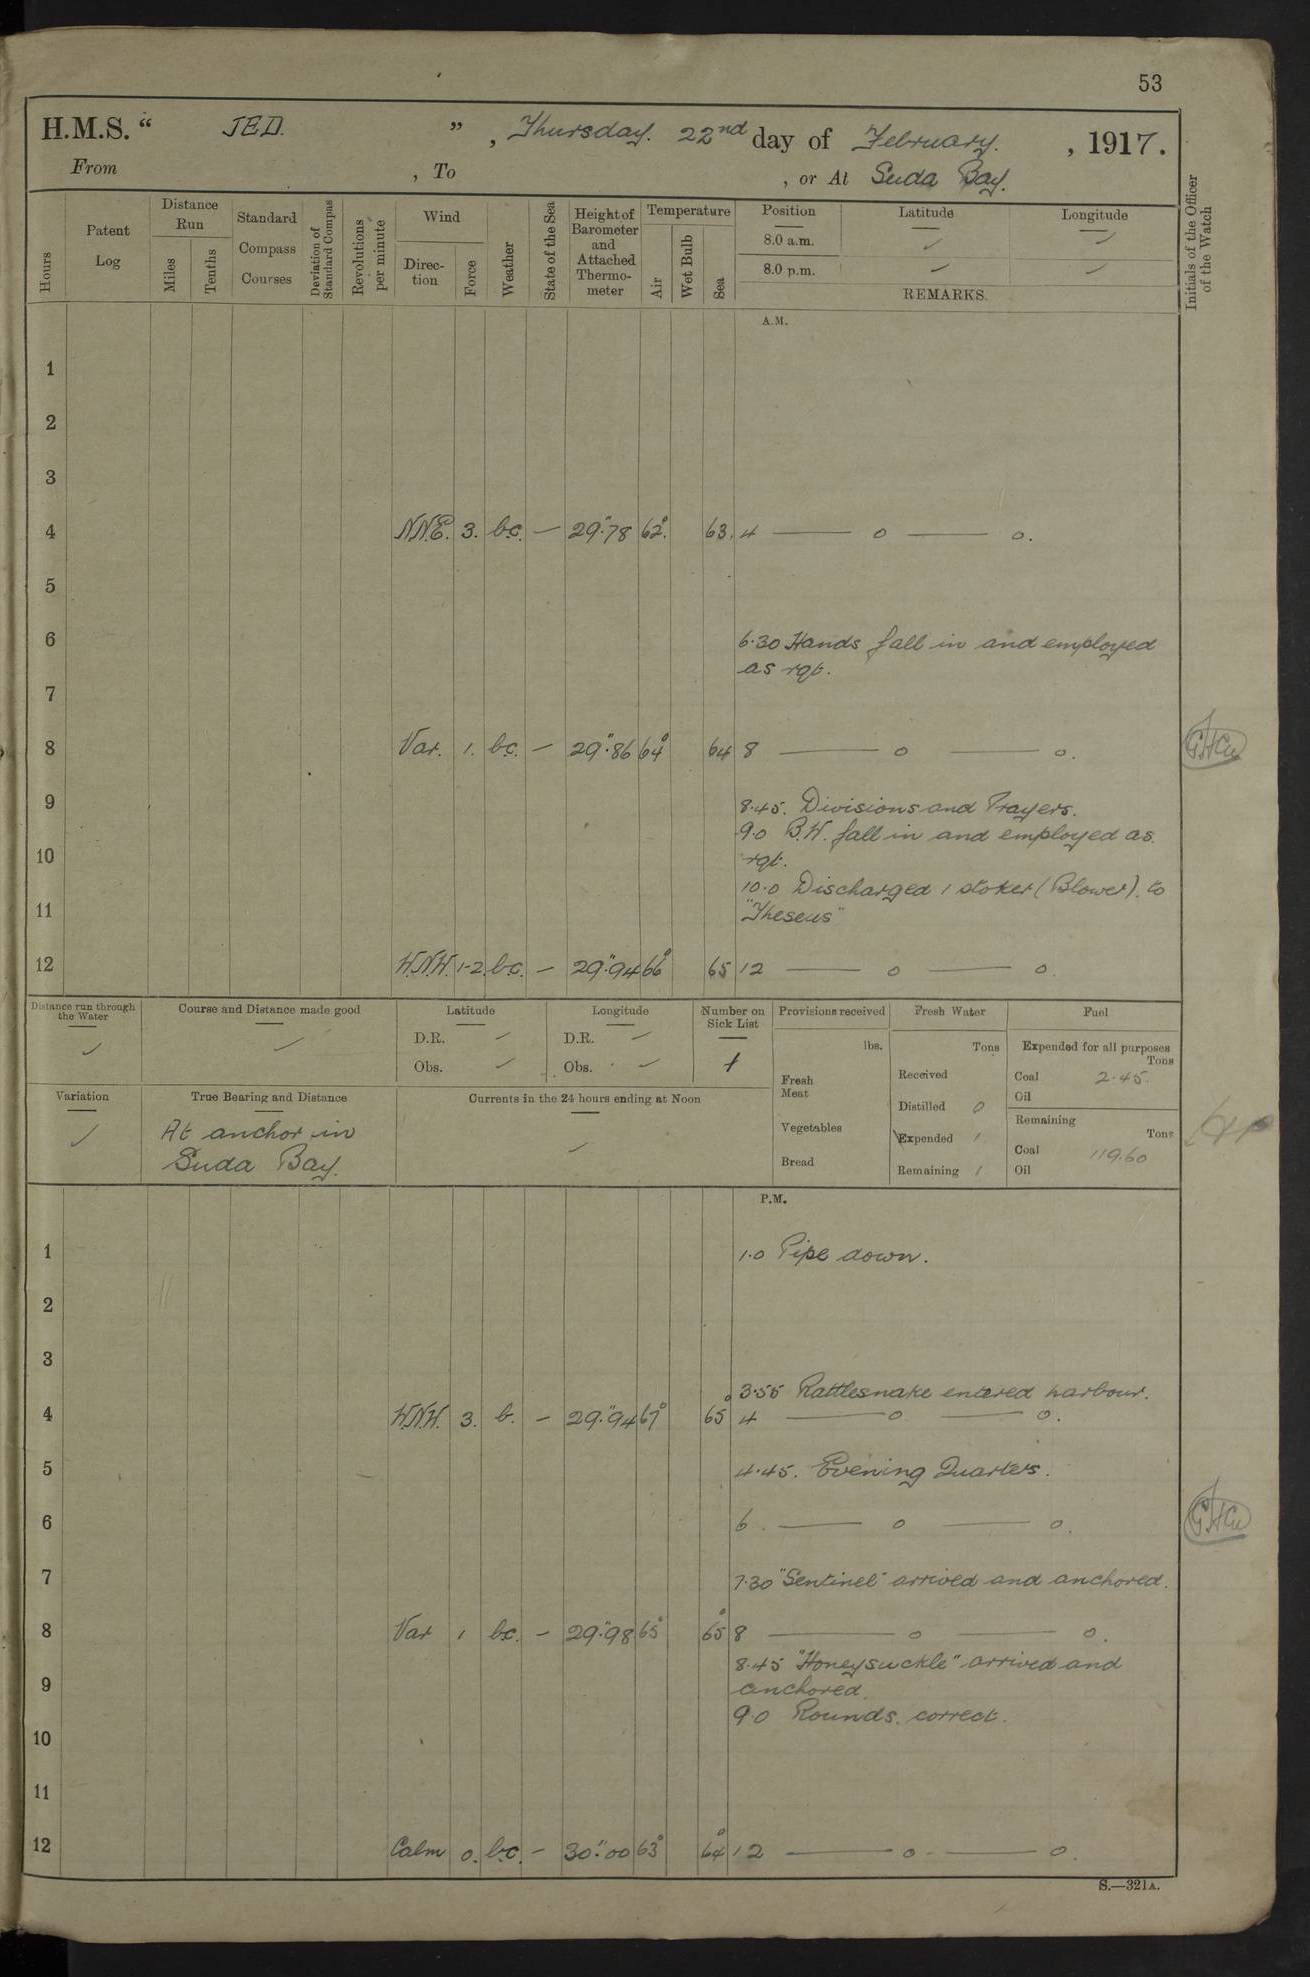 53
H.M.S. “ JED. ” , Thursday. 22nd day of February. , 1917.
From , To , or At Suda Bay.
Hours
Patent Log
Distance Run
Miles
Tenths
Standard Compass Courses
Deviation of Standard Compas
Revolutions per minute
Wind
Direc-tion
Force
Weather
State of the Sea
Height of Barometer and Attached Thermo-meter
Temperature
Air
Wet Bulb
Sea
Position Latitude Longitude
8.0 a.m. ✓ ✓
8.0 p.m. ✓ ✓
REMARKS.
Initials of the Officer of the Watch
A.M.
1
2
3
4 N.N.E. 3. b.c. — 29".78 62°. 63. 4 — o — o.
5
6 6.30 Hands fall in and employed
as rqt.
7
8 Var. 1. b.c. — 29".86 64° 64 8 — o — o.
9 8.45. Divisions and Prayers.
9.0 B.W. fall in and employed as
10 rqt.
10.0 Discharged 1 stoker (Blower). to
11 "Theseus"
12 W.N.W. 1-2. b.c. — 29".94 66° 65 12 — o — o.
Distance run through the Water
✓
Course and Distance made good
✓
Latitude
D.R. ✓
Obs. ✓
Longitude
D.R. ✓
Obs. ✓
Number on Sick List
1
Provisions received
lbs.
Fresh Meat
Vegetables
Bread
Fresh Water
Tons
Received
Distilled 0
Expended 1
Remaining 1
Fuel
Expended for all purposes
Tons
Coal 2.45.
Oil
Remaining
Tons
Coal 119.60
Oil
Variation
✓
True Bearing and Distance
At anchor in
Suda Bay.
Currents in the 24 hours ending at Noon
✓
P.M.
1 1.0 Pipe down.
2
3
3.55 Rattlesnake entered harbour.
4 W.N.W. 3. b. — 29".94 67° 65° 4 — o — o.
5 4.45. Evening Quarters.
6 6. — o — o.
7 7.30 "Sentinel" arrived and anchored.
8 Var 1 b.c. — 29".98 65° 65° 8 — o — o.
8.45 "Honeysuckle" arrived and
9 anchored.
9.0 Rounds. correct.
10
11
12 Calm 0. b.c. — 30".00 63° 64° 12 — o — o.
S.—321A.